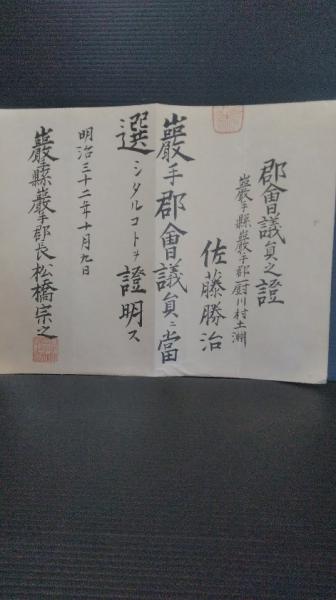 郡會議員之證
巖手縣巖手郡厨川村土淵
佐藤勝治
巖手郡會議員ニ當
選シタルコトヲ證明ス
明治三十二年十月九日
巖手縣巖手郡長松橋宗之